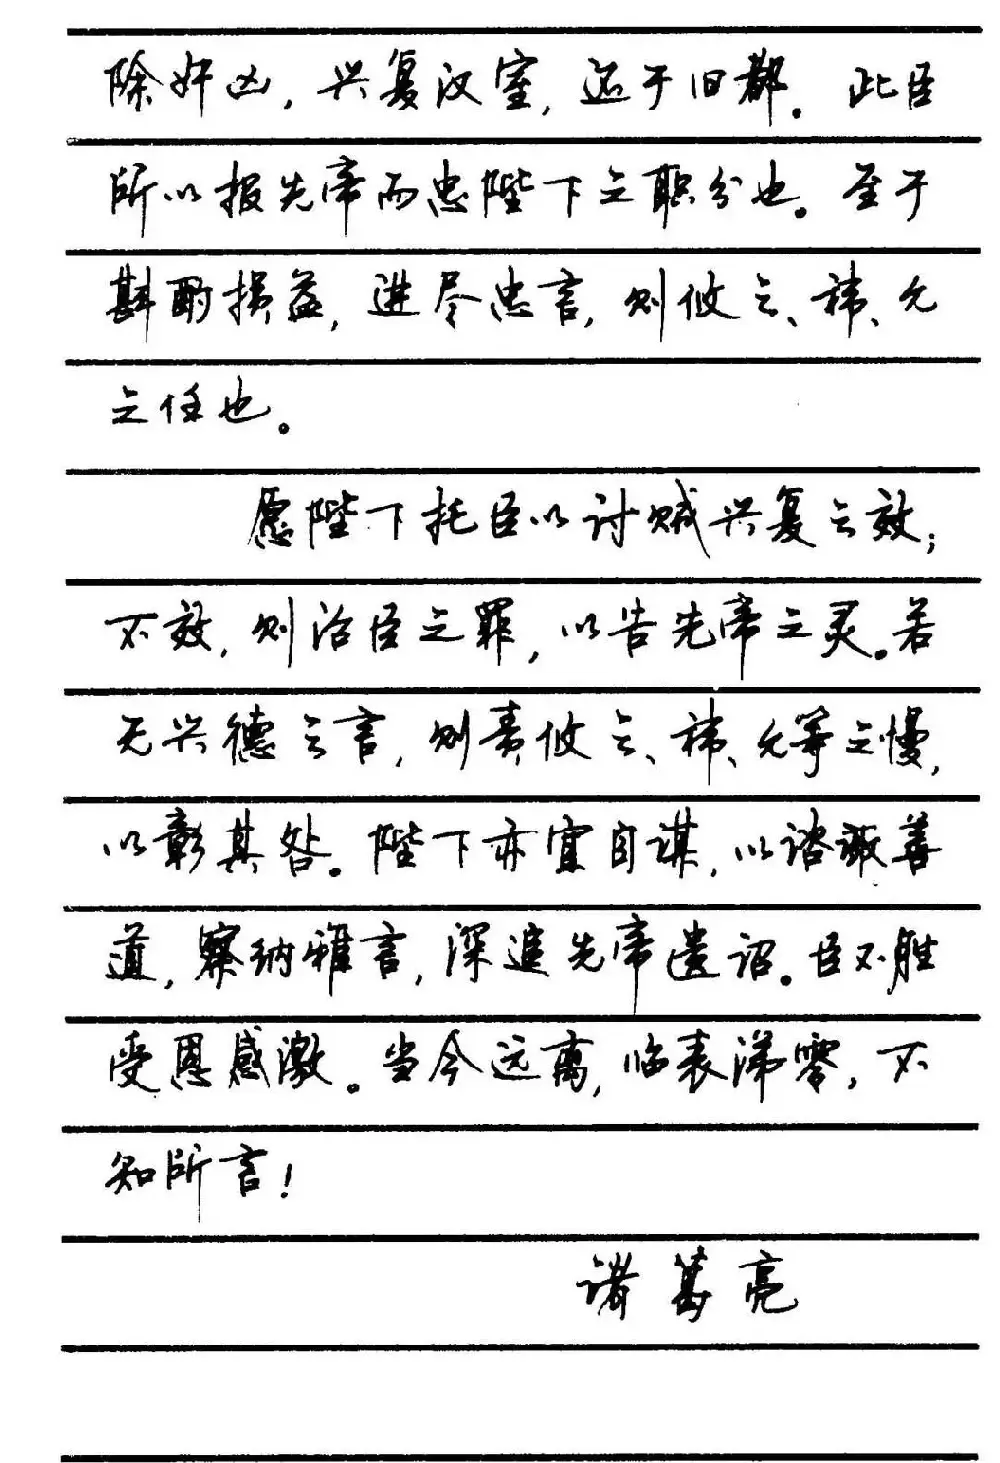 除奸凶，兴复汉室，还于旧都。此臣
所以报先帝而忠陛下之职分也。至于
斟酌损益，进尽忠言，则攸之、祎、允
之任也。
愿陛下托臣以讨贼兴复之效；
不效，则治臣之罪，以告先帝之灵。若
无兴德之言，则责攸之、祎、允等之慢，
以彰其咎。陛下亦宜自谋，以谘诹善
道，察纳雅言，深追先帝遗诏。臣不胜
受恩感激。当今远离，临表涕零，不
知所言！
诸葛亮